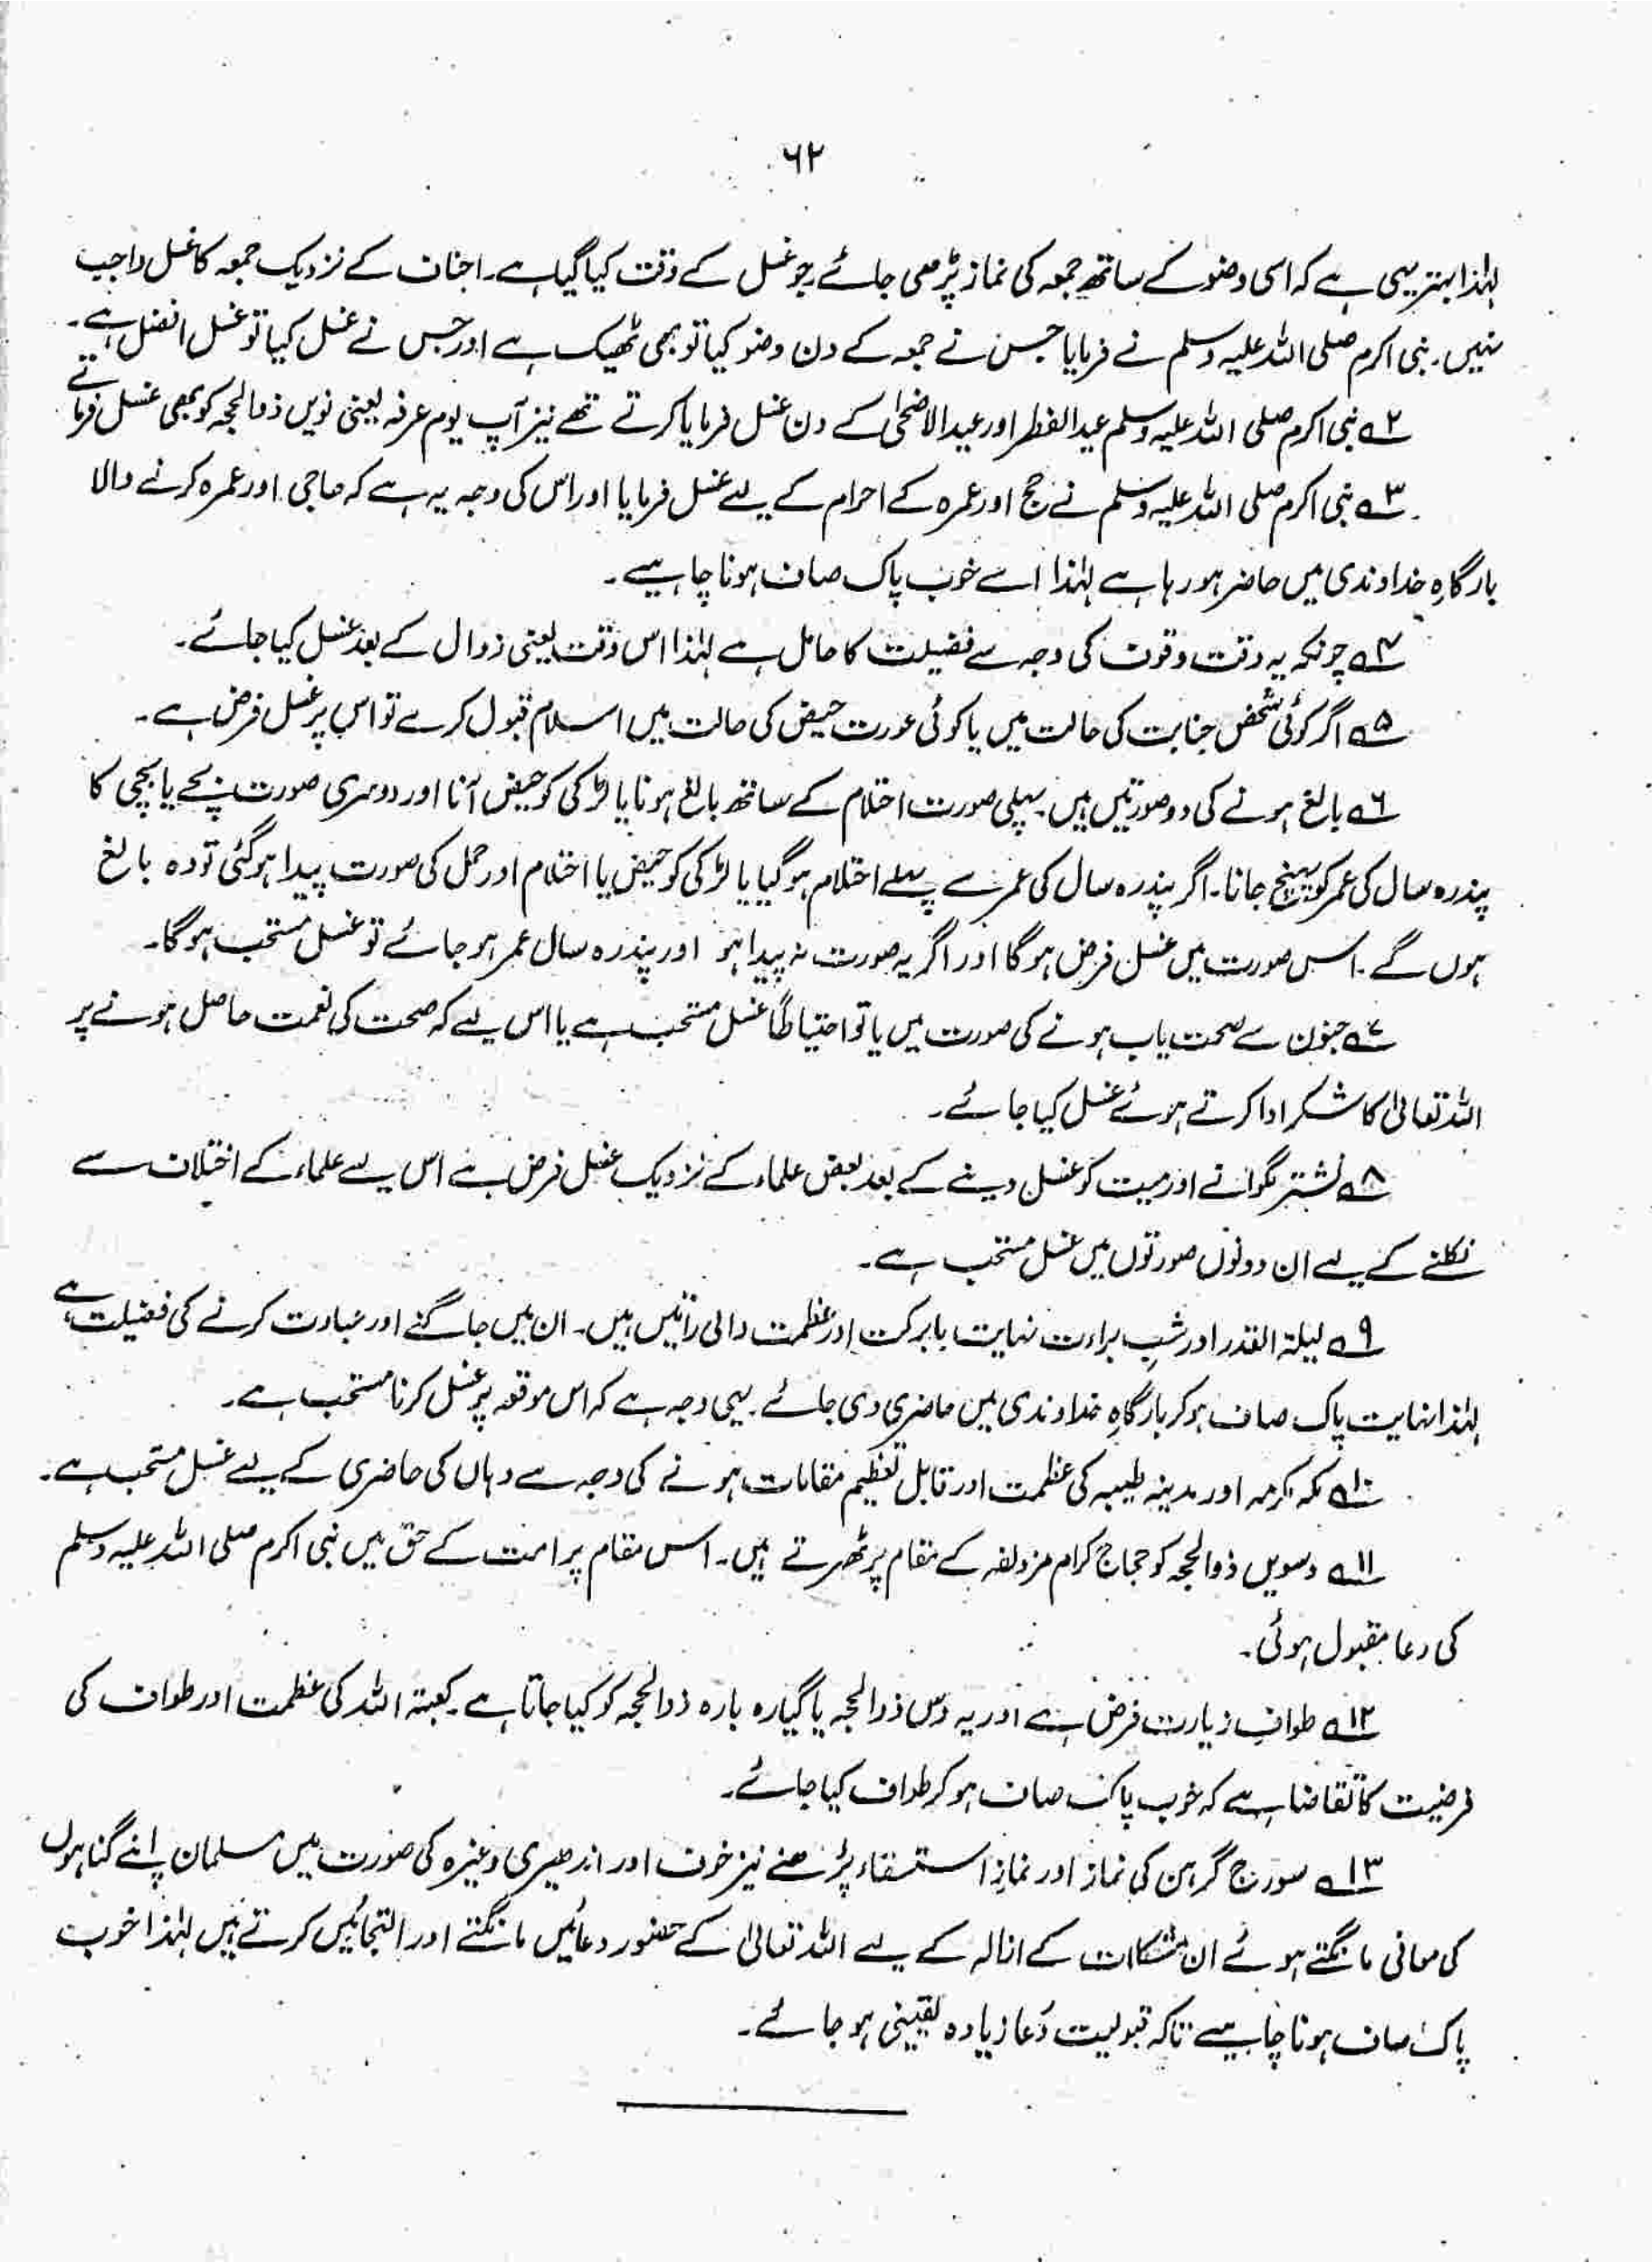 ۶۲
لہٰذا بہتر یہی ہے کہ اسی وضو کے ساتھ جمعہ کی نماز پڑھی جائے جو غسل کے وقت کیا گیا ہے۔ احناف کے نزدیک جمعہ کا غسل واجب
نہیں۔ نبی اکرم صلی اللہ علیہ وسلم نے فرمایا جس نے جمعہ کے دن وضو کیا تو بھی ٹھیک ہے اور جس نے غسل کیا تو غسل افضل ہے۔
۲ نبی اکرم صلی اللہ علیہ وسلم عید الفطر اور عید الاضحیٰ کے دن غسل فرمایا کرتے تھے نیز آپ یوم عرفہ یعنی نویں ذوالحجہ کو بھی غسل فرماتے
۳ نبی اکرم صلی اللہ علیہ وسلم نے حج اور عمرہ کے احرام کے لیے غسل فرمایا اور اس کی وجہ یہ ہے کہ حاجی اور عمرہ کرنے والا
بارگاہِ خداوندی میں حاضر ہو رہا ہے لہٰذا اسے خوب پاک صاف ہونا چاہیے۔
۴ چونکہ یہ وقت وقوف کی وجہ سے فضیلت کا حامل ہے لہٰذا اس وقت یعنی زوال کے بعد غسل کیا جائے۔
۵ اگر کوئی شخص جنابت کی حالت میں یا کوئی عورت حیض کی حالت میں اسلام قبول کرے تو اس پر غسل فرض ہے۔
۶ بالغ ہونے کی دو صورتیں ہیں۔ پہلی صورت احتلام کے ساتھ بالغ ہونا یا لڑکی کو حیض آنا اور دوسری صورت بچے یا بچی کا
پندرہ سال کی عمر کو پہنچ جانا۔ اگر پندرہ سال کی عمر سے پہلے احتلام ہو گیا یا لڑکی کو حیض یا احتلام اور حمل کی صورت پیدا ہو گئی تو وہ بالغ
ہوں گے۔ اس صورت میں غسل فرض ہو گا اور اگر یہ صورت نہ پیدا ہو اور پندرہ سال عمر ہو جائے تو غسل مستحب ہو گا۔
۷ جنون سے صحت یاب ہونے کی صورت میں یا تو احتیاطاً غسل مستحب ہے یا اس لیے کہ صحت کی نعمت حاصل ہونے پر
اللہ تعالیٰ کا شکر ادا کرتے ہوئے غسل کیا جائے۔
۸ نشتر لگوانے اور میت کو غسل دینے کے بعد بعض علماء کے نزدیک غسل فرض ہے اس لیے علماء کے اختلاف سے
نکلنے کے لیے ان دونوں صورتوں میں غسل مستحب ہے۔
۹ لیلۃ القدر اور شبِ براءت نہایت بابرکت اور عظمت والی راتیں ہیں۔ ان میں جاگنے اور عبادت کرنے کی فضیلت ہے
لہٰذا نہایت پاک صاف ہو کر بارگاہِ خداوندی میں حاضری دی جائے۔ یہی وجہ ہے کہ اس موقعہ پر غسل کرنا مستحب ہے۔
۱۰ مکہ مکرمہ اور مدینہ طیبہ کی عظمت اور قابل تعظیم مقامات ہونے کی وجہ سے وہاں کی حاضری کے لیے غسل مستحب ہے۔
۱۱ دسویں ذوالحجہ کو حجاج کرام مزدلفہ کے مقام پر ٹھہرتے ہیں۔ اس مقام پر امت کے حق میں نبی اکرم صلی اللہ علیہ وسلم
کی دعا مقبول ہوئی۔
۱۲ طوافِ زیارت فرض ہے اور یہ دس ذوالحجہ یا گیارہ بارہ ذوالحجہ کو کیا جاتا ہے۔ کعبۃ اللہ کی عظمت اور طواف کی
فرضیت کا تقاضا ہے کہ خوب پاک صاف ہو کر طواف کیا جائے۔
۱۳ سورج گرہن کی نماز اور نمازِ استسقاء پڑھنے نیز خوف اور اندھیری وغیرہ کی صورت میں مسلمان اپنے گناہوں
کی معافی مانگتے ہوئے ان مشکلات کے ازالہ کے لیے اللہ تعالیٰ کے حضور دعائیں مانگتے اور التجائیں کرتے ہیں لہٰذا خوب
پاک صاف ہونا چاہیے تاکہ قبولیت دُعا زیادہ یقینی ہو جائے۔